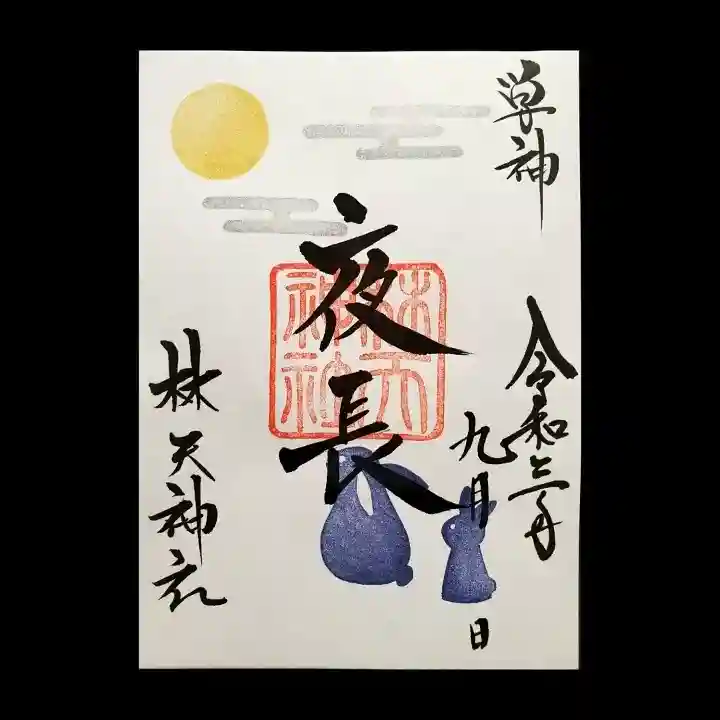 学神
令和三年
九月 日
夜長
林天神社
林天神社